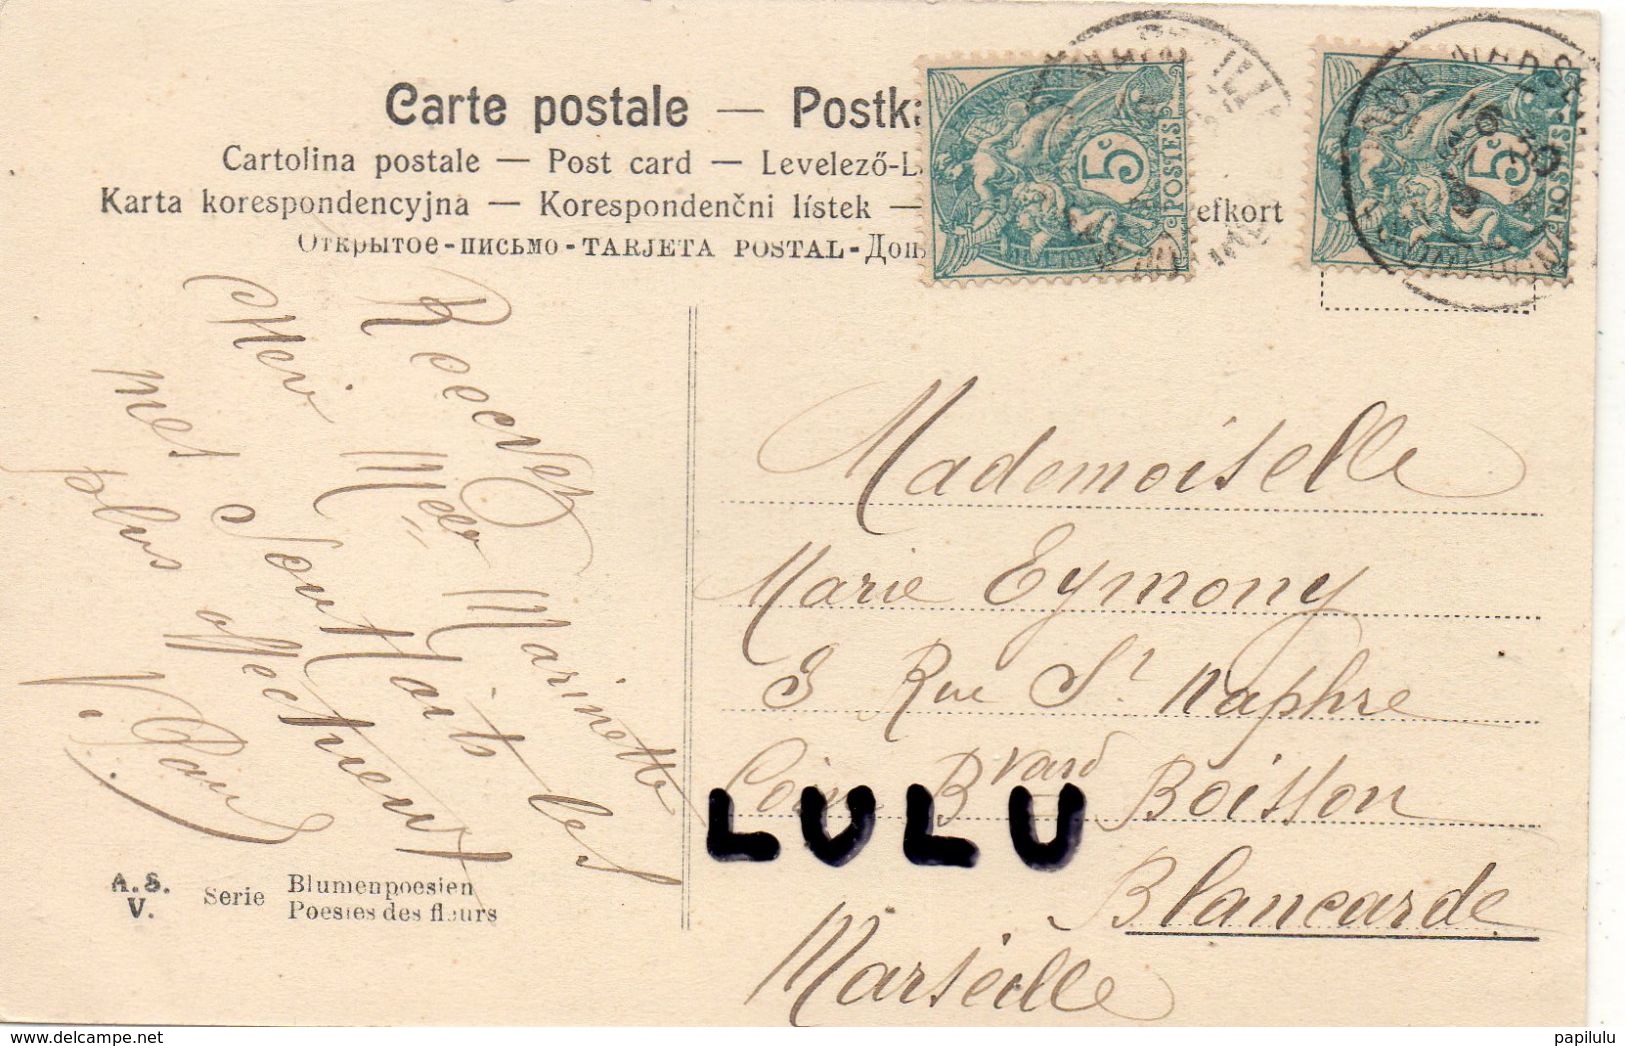 Carte postale — Postka
Cartolina postale — Post card — Levelező-L
Karta korespondencyjna — Korespondenčni lístek — efkort
Открытое-письмо-TARJETA POSTAL-Доп
5c
POSTES
5c
POSTES
Recevez
cher Melle Marinette
mes Souhaits les
plus affectueux
Mademoiselle
Marie Eymony
3 Rue St Naphre
Coin Bvard Boisson
Blancarde
Marseille
LULU
A.S.
V.
Serie
Blumenpoesien
Poesies des fleurs
delcampe.net
papilulu